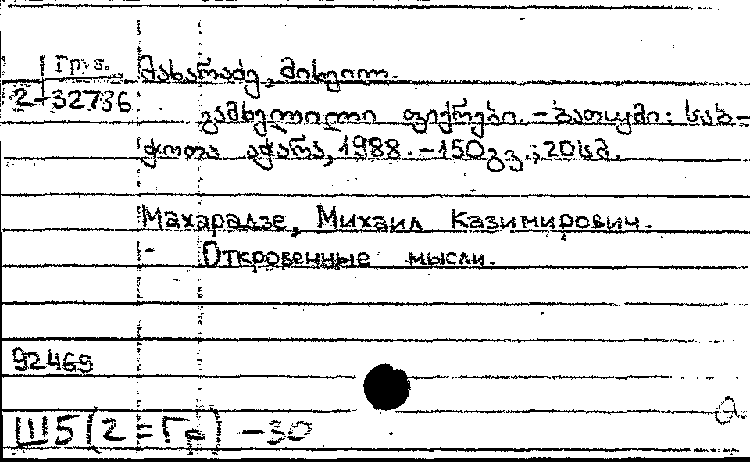 Груз. მახარაძე, მიხეილ.
2-32736
გამხელილი ფიქრები. - ბათუმი: საბ-
ჭოთა აჭარა, 1988. - 150გვ.; 20სმ.
Махарадзе, Михаил Казимирович.
- Откровенные мысли.
92469
Ш5(2=Гр) -30